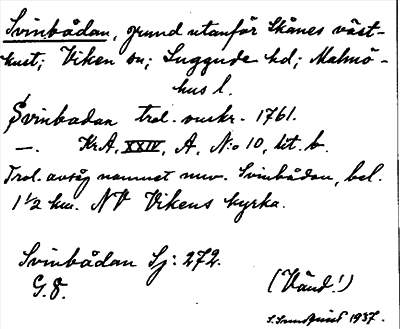 Svinbådan, grund utanför Skånes väst-
kust; Viken sn; Luggude hd; Malmö-
hus l.
Svinbadan trol. omkr. 1761.
—. KrA, XXIV, A, N:o 10, lit. b.
Trol. avsåg namnet nuv. Svinbådan, bel.
1 1/2 km. NV Vikens kyrka.
Svinbådan Sj: 272.
G. F.
(Vänd!)
S. Sundquist 1937.